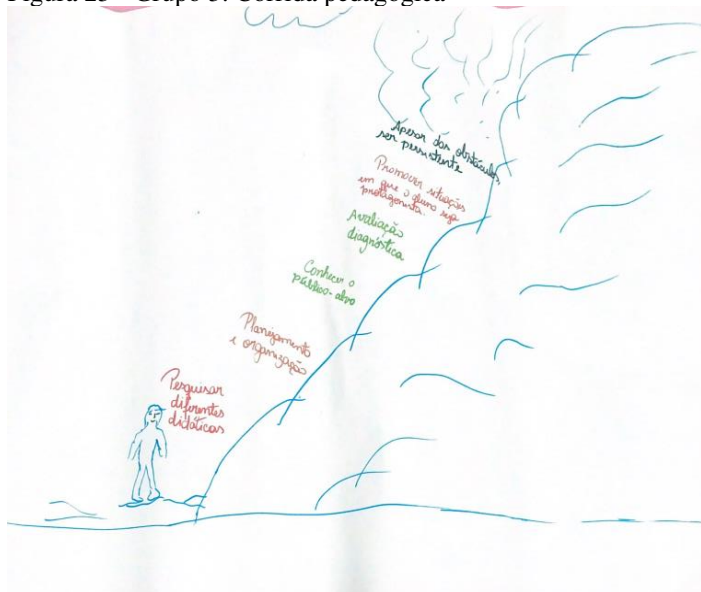 Figura 23 – Grupo 3: Corrida pedagógica
Apesar dos obstáculos,
ser persistente
Promover situações
em que o aluno seja
protagonista.
Avaliação
diagnóstica
Conhecer o
público-alvo
Planejamento
e organização
Pesquisar
diferentes
didáticas